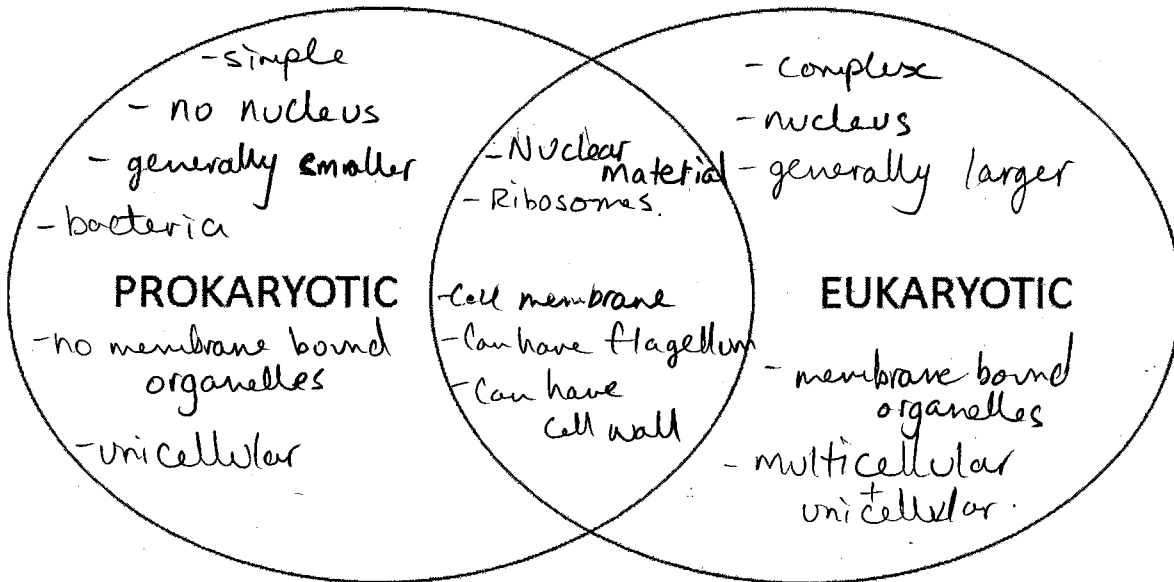 - simple
- no nucleus
- generally smaller
- bacteria
PROKARYOTIC
- no membrane bound
organelles
- unicellular
- Nuclear
material
- Ribosomes.
- Cell membrane
- Can have flagellum
- Can have
cell wall
- complex
- nucleus
- generally larger
EUKARYOTIC
- membrane bound
organelles
- multicellular
+
unicellular.